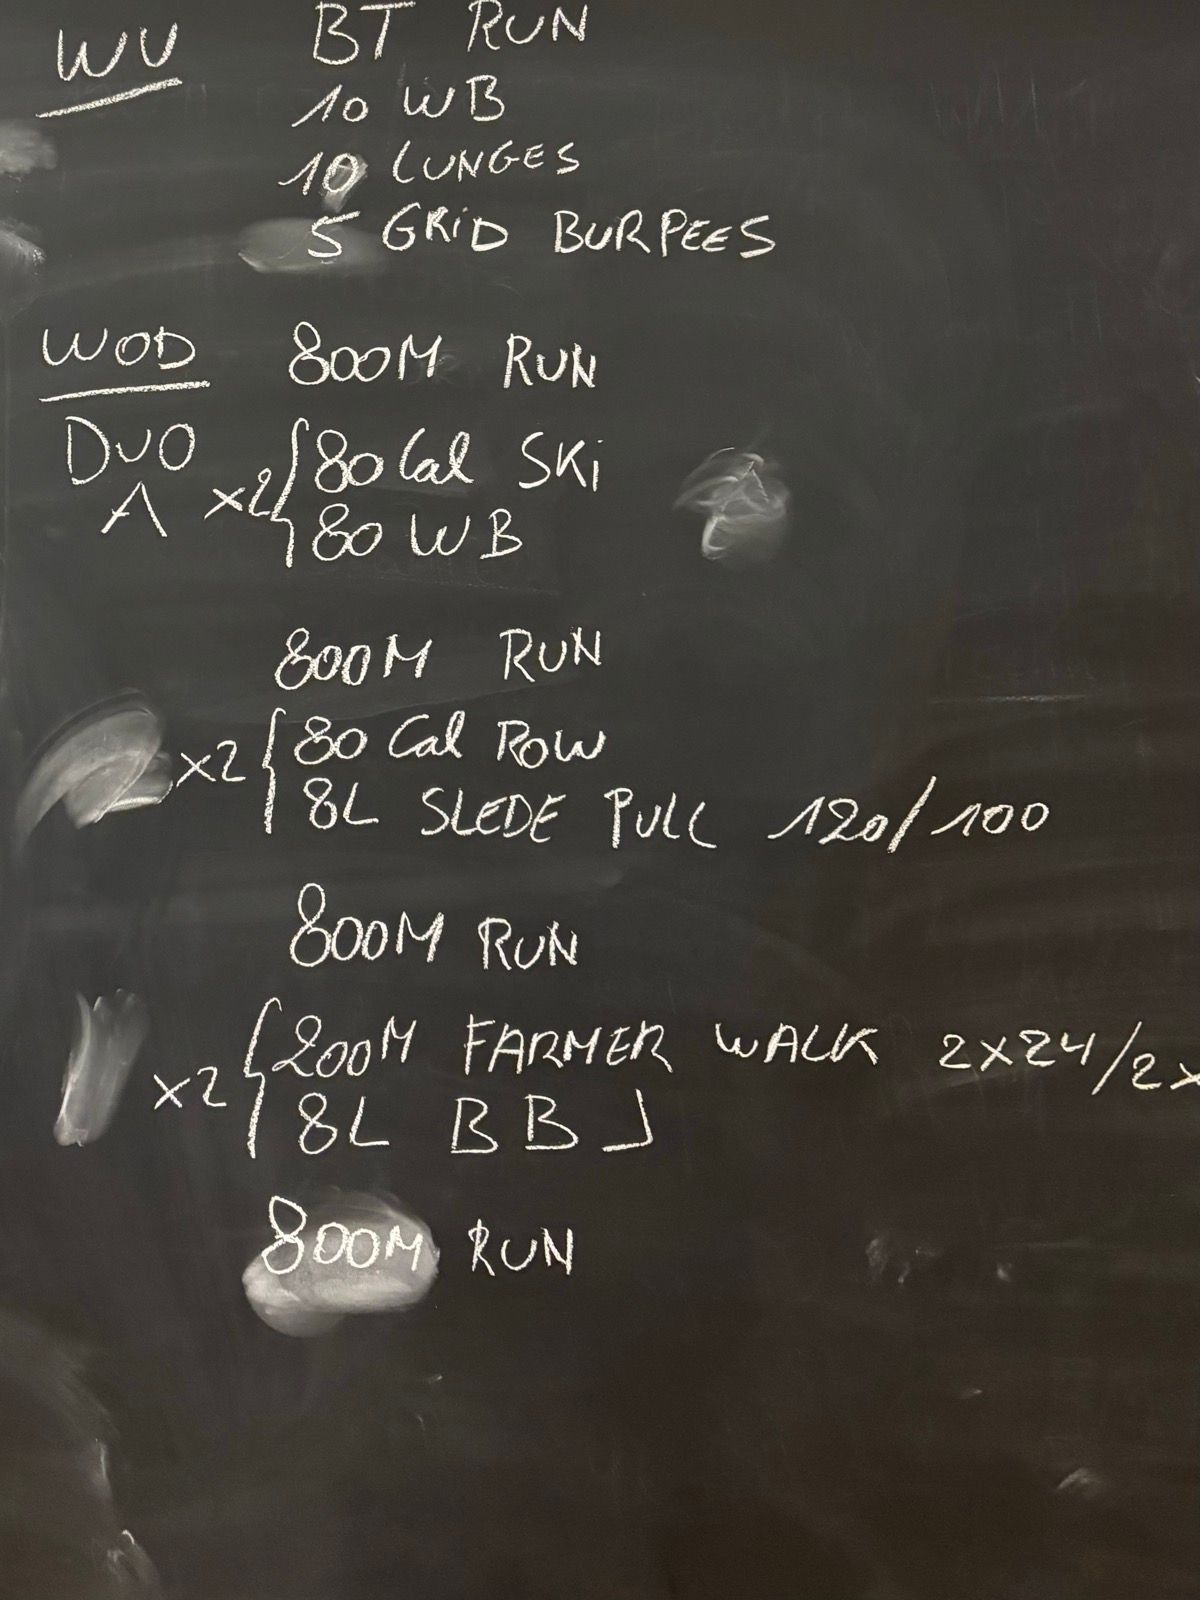 WU BT RUN
10 WB
10 LUNGES
5 GRID BURPEES
WOD 800M RUN
DUO A x2 { 80 Cal SKi
80 WB
800M RUN
x2 { 80 Cal ROW
8L SLEDE PULL 120/100
800M RUN
x2 { 200M FARMER WALK 2x24/2x
8L BBJ
800M RUN